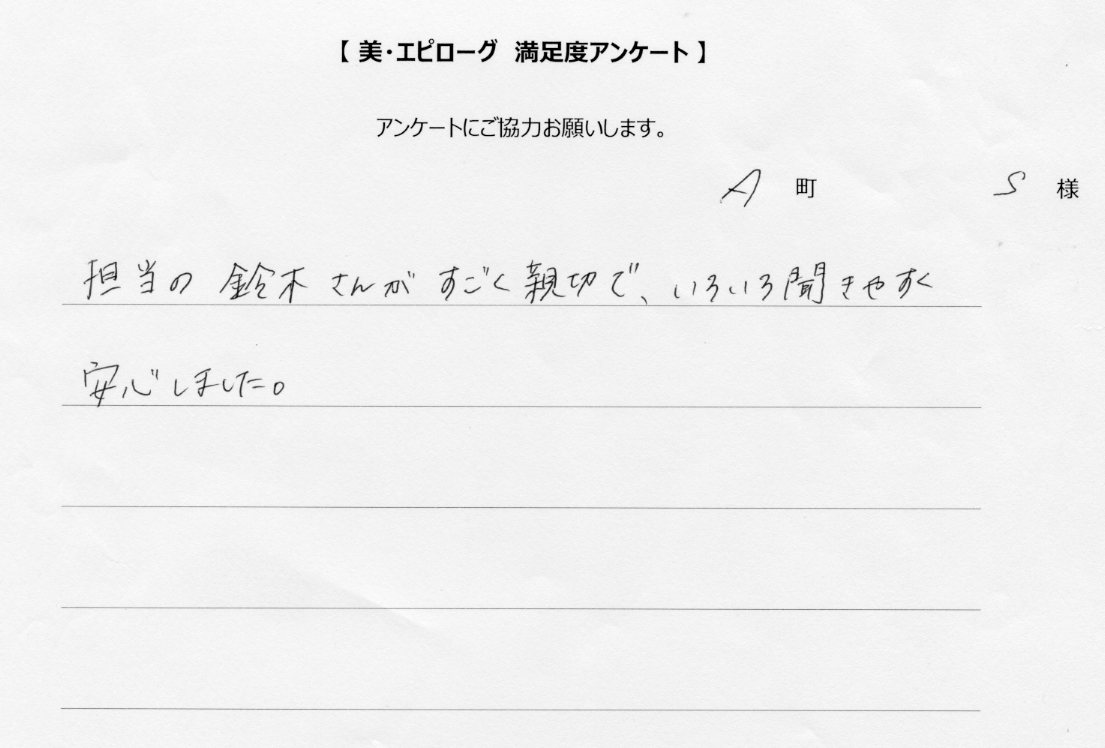 【 美・エピローグ 満足度アンケート 】
アンケートにご協力お願いします。
A 町 S 様
担当の鈴木さんがすごく親切で、いろいろ聞きやすく
安心しました。